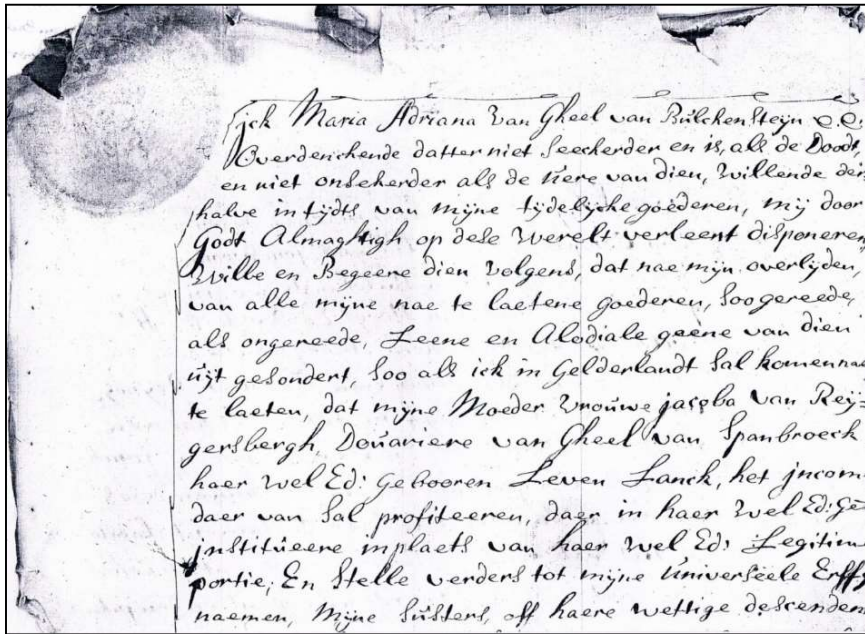 jck Maria Adriana van Gheel van Bulckensteyn e.e:
Overdenckende datter niet seeckerder en is, als de Doodt,
en niet onsekerder als de uere van dien, willende der
halve in tydts van mÿne tÿdelÿcke goederen, mÿ door
Godt Almaghtigh op dese werelt verleent disponeren,
Wille en Begeere dien volgens, dat nae mÿn overlÿden,
van alle mÿne nae te laetene goederen, soo gereede,
als ongereede, Leene en Alodiale geene van dien
uÿt gesondert, soo als ick in Gelderlandt sal komen nae
te laeten, dat mÿne Moeder Vrouwe jacoba van Reÿ=
gersbergh, Douariere van Gheel van Spanbroeck
haer wel Ed: Gebooren Leven Lanck, het jncom
daer van sal profiteeren, daer in haer wel Ed: Ge
jnstitueere in plaets van haer wel Ed: Legitim
portie, En stelle verders tot mÿne universeele Erff
naemen, mÿne susters, off haere wettige descenden